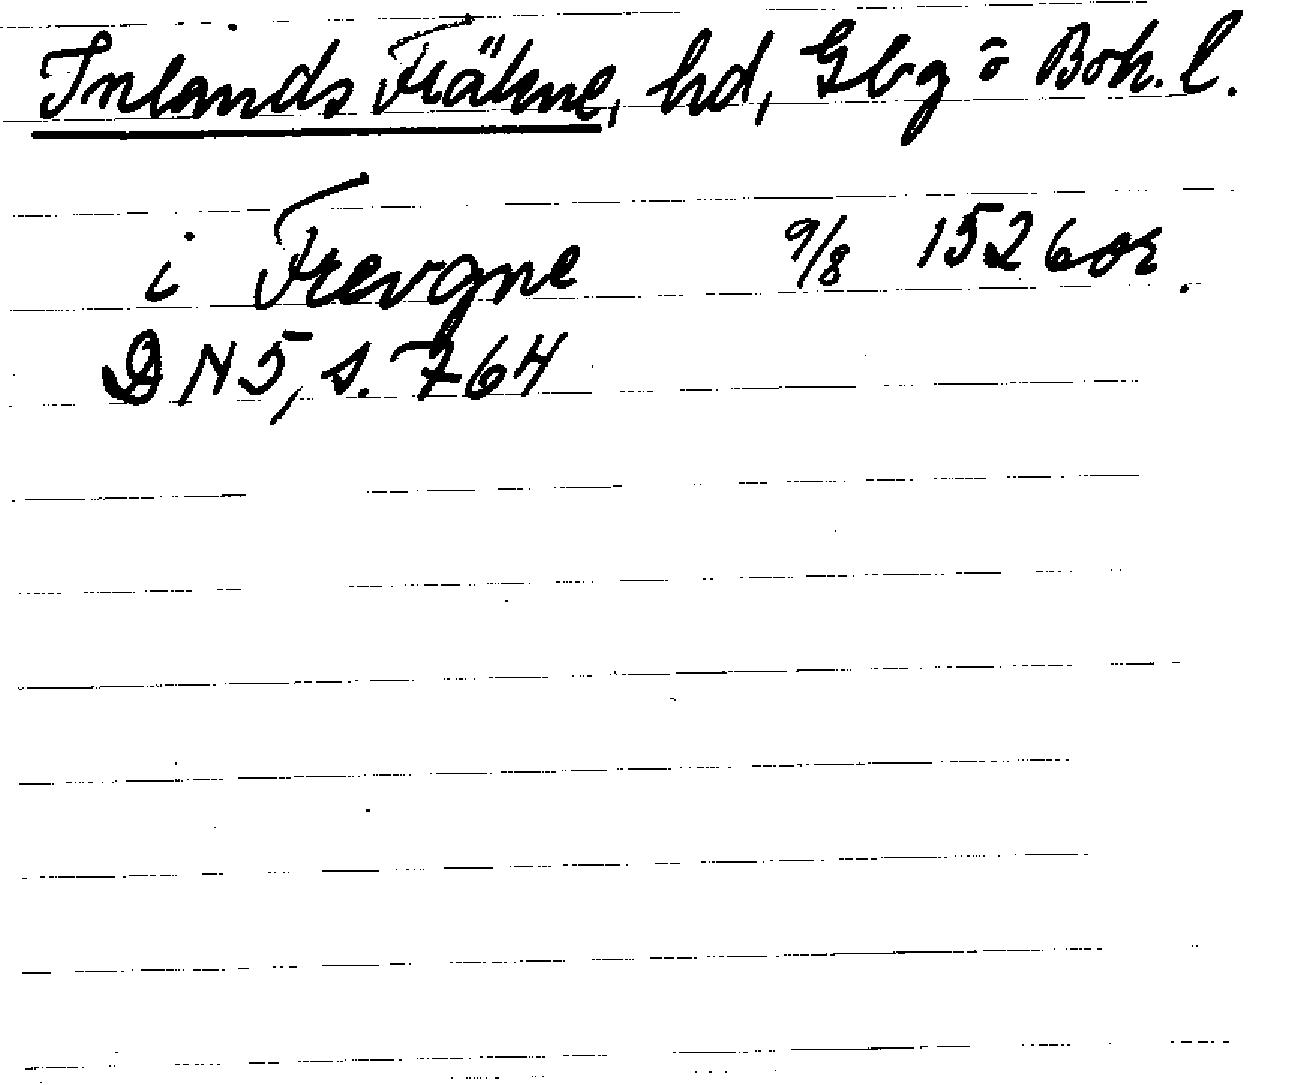 Inlands Fräkne, hd, Gbg ō Boh. l.
i Frevgne 9/8 1526 or.
DN 5, s. 764